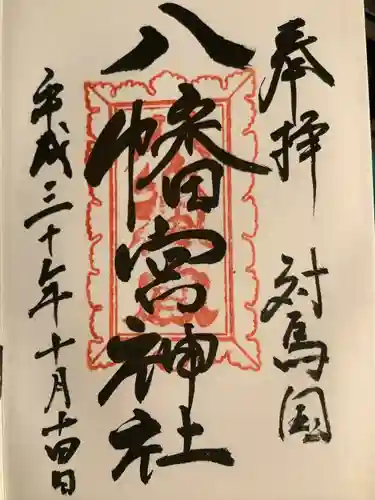 奉拝
対馬国
八幡宮神社
平成三十年十月十四日